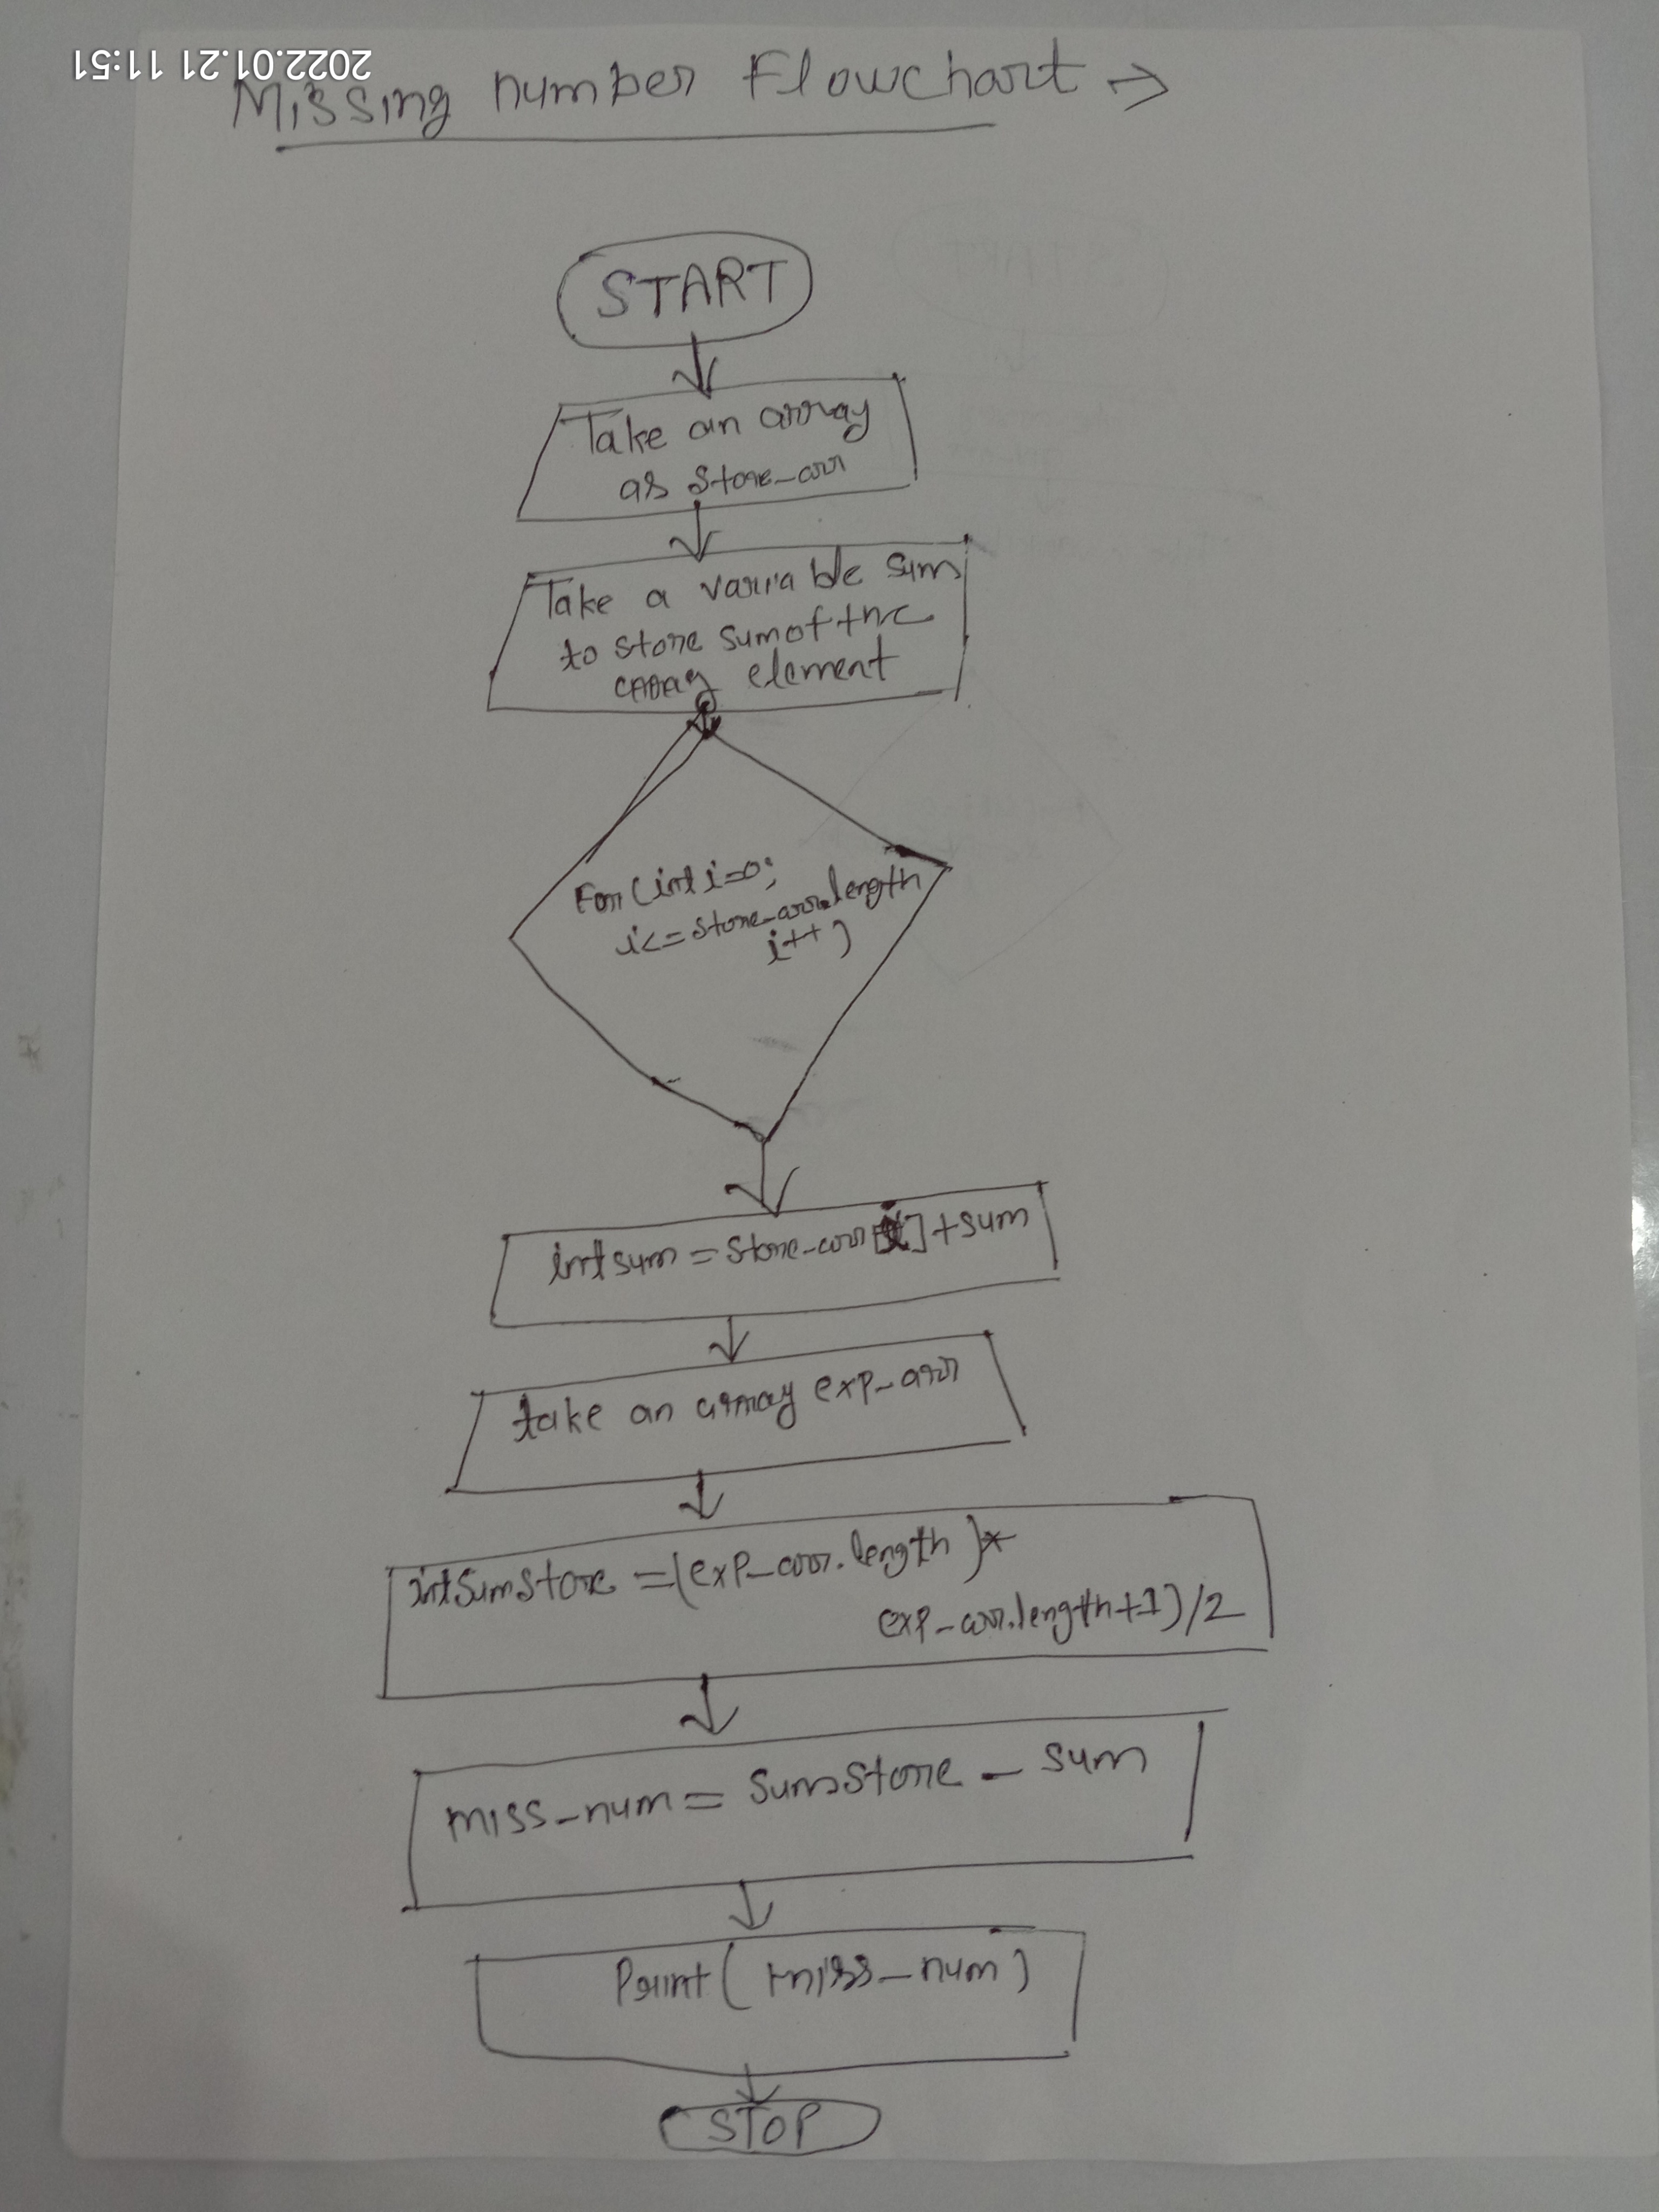 2022.01.21 11:51
Missing number Flowchart →
START
Take an array
as Store_arr
Take a variable sum
to store sum of the
array element
For (int i=0;
i<=store_arr.length
i++)
int sum = Store_arr[i]+sum
take an array exp_arr
int Sumstore =(exp_arr.length)*
exp_arr.length+1)/2
miss_num = Sumstore - sum
Print( miss_num)
STOP